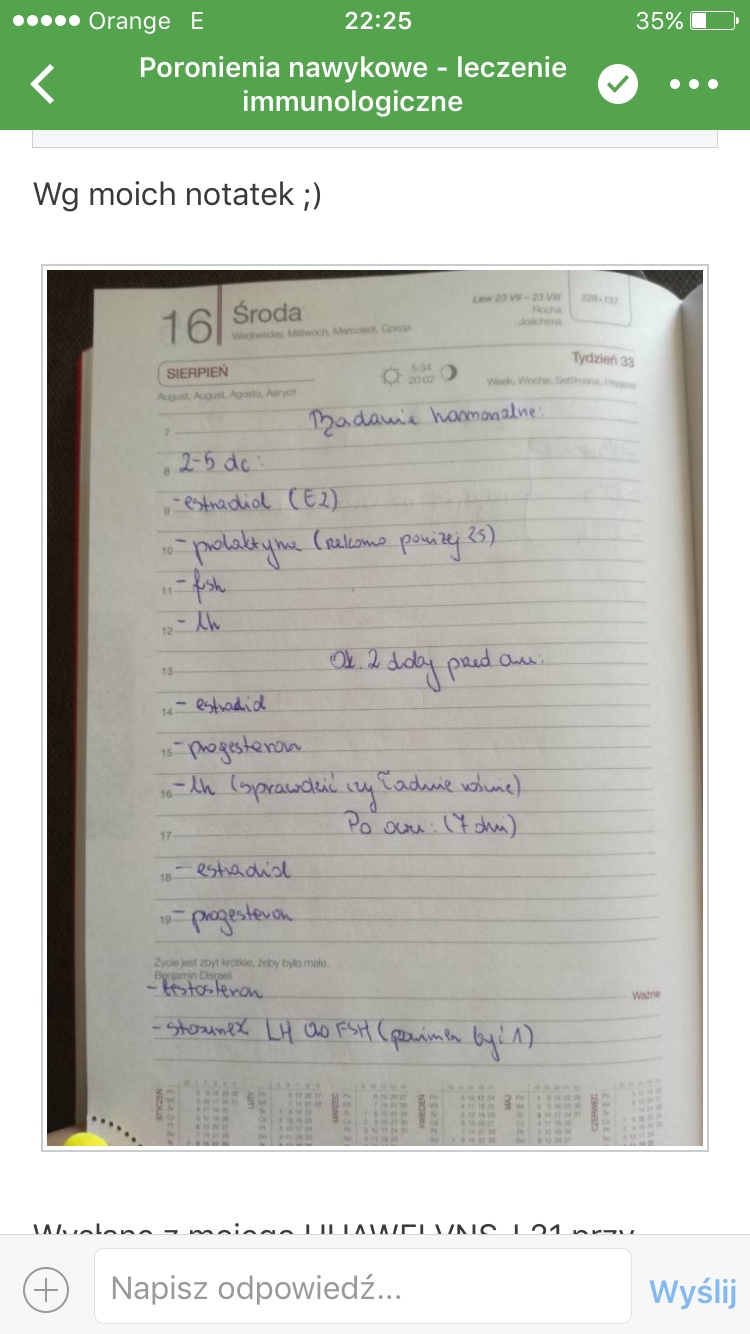 Orange E 22:25 35%
Poronienia nawykowe - leczenie
immunologiczne
Wg moich notatek ;)
16 Środa
Wednesday, Mittwoch, Mercoledì, Среда
Lew 23 VII – 23 VIII
Rocha
Joachima
228+137
SIERPIEŃ
August, August, Agosto, Август
8:34
20:02
Tydzień 33
Week, Woche, Settimana, Неделя
7 Badanie hormonalne:
8 2-5 dc:
9 - estradiol (E2)
10 - prolaktyna (rekomo poniżej 25)
11 - fsh
12 - lh
13 Ok. 2 doby przed owu:
14 - estradiol
15 - progesteron
16 - lh (sprawdzić czy ładnie rośnie)
17 Po owu: (7 dni)
18 - estradiol
19 - progesteron
Życie jest zbyt krótkie, żeby było małe.
Benjamin Disraeli
- testosteron
Ważne
- stosunek LH do FSH (powinien być 1)
STYCZEŃ LUTY MARZEC KWIECIEŃ MAJ CZERWIEC
Wysłane z mojego HUAWEI VNS-L21 przy
Napisz odpowiedź...
Wyślij